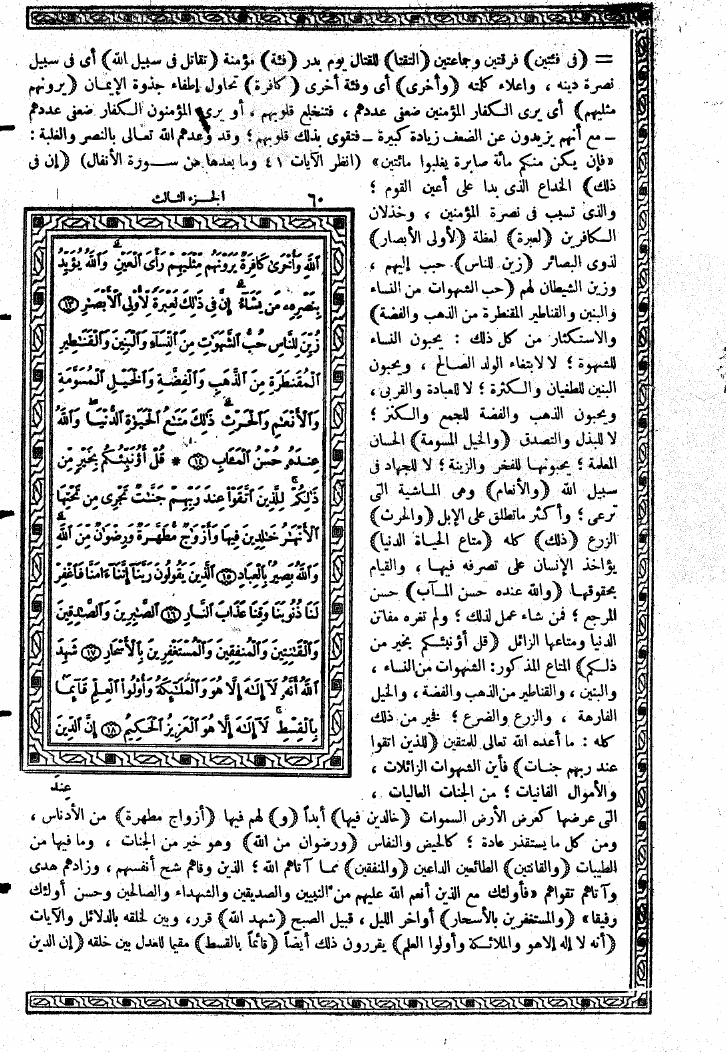 = (فى فئتين) فرقتين وجماعتين (التقتا) للقتال يوم بدر (فئة) مؤمنة (تقاتل فى سبيل الله) أى فى سبيل
نصرة دينه ، واعلاء كلمته (وأخرى) أى وفئة أخرى (كافرة) تحاول إطفاء جذوة الإيمان (يرونهم
مثليهم) أى يرى الكفار المؤمنين ضعفى عددهم ، فتنخلع قلوبهم ، أو يرى المؤمنون الكفار ضعفى عددهم
ـ مع أنهم يزيدون عن الضعف زيادة كبيرة ـ فتقوى بذلك قلوبهم ؛ وقد وعدهم الله تعالى بالنصر والغلبة :
«فإن يكن منكم مائة صابرة يغلبوا مائتين» (انظر الآيات ٤١ وما بعدها من سورة الأنفال) (إن فى
ذلك) الخداع الذى بدا على أعين القوم ؛
والذى تسبب فى نصرة المؤمنين ، وخذلان
الكافرين (لعبرة) لعظة (لأولى الأبصار)
لذوى البصائر (زين للناس) حبب إليهم ،
وزين الشيطان لهم (حب الشهوات من النساء
والبنين والقناطير المقنطرة من الذهب والفضة)
والاستكثار من كل ذلك : يحبون النساء
للشهوة ؛ لا لابتغاء الولد الصالح ، ويحبون
البنين للطغيان والكثرة ؛ لا للعبادة والقربى ،
ويحبون الذهب والفضة للجمع والكنز ؛
لا للبذل والتصدق (والخيل المسومة) الحسان
المعلمة ؛ يحبونها للفخر والزينة ؛ لا للجهاد فى
سبيل الله (والأنعام) وهى الماشية التى
ترعى ؛ وأكثر ماتطلق على الإبل (والحرث)
الزرع (ذلك) كله (متاع الحياة الدنيا)
يؤاخذ الإنسان على تصرفه فيها ، والقيام
بحقوقها (والله عنده حسن المآب) حسن
المرجع ؛ فمن شاء عمل لذلك ؛ ولم تغره مفاتن
الدنيا ومتاعها الزائل (قل أؤنبئكم بخير من
ذلكم) المتاع المذكور: الشهوات من النساء ،
والبنين ، والقناطير من الذهب والفضة ، والخيل
الفارهة ، والزرع والضرع ؛ فخير من ذلك
كله : ما أعده الله تعالى للمتقين (للذين اتقوا
عند ربهم جنات) فأين الشهوات الزائلات ،
والأموال الفانيات ؛ من الجنات العاليات ،
الجزء الثالث ٦٠
ٱللَّهِ وَأُخْرَىٰ كَافِرَةٌ يَرَوْنَهُم مِّثْلَيْهِمْ رَأْىَ ٱلْعَيْنِ ۚ وَٱللَّهُ يُؤَيِّدُ
بِنَصْرِهِۦ مَن يَشَآءُ ۗ إِنَّ فِى ذَٰلِكَ لَعِبْرَةً لِّأُو۟لِى ٱلْأَبْصَٰرِ ﴿١٣﴾
زُيِّنَ لِلنَّاسِ حُبُّ ٱلشَّهَوَٰتِ مِنَ ٱلنِّسَآءِ وَٱلْبَنِينَ وَٱلْقَنَٰطِيرِ
ٱلْمُقَنطَرَةِ مِنَ ٱلذَّهَبِ وَٱلْفِضَّةِ وَٱلْخَيْلِ ٱلْمُسَوَّمَةِ
وَٱلْأَنْعَٰمِ وَٱلْحَرْثِ ۗ ذَٰلِكَ مَتَٰعُ ٱلْحَيَوٰةِ ٱلدُّنْيَا ۖ وَٱللَّهُ
عِندَهُۥ حُسْنُ ٱلْمَـَٔابِ ﴿١٤﴾ * قُلْ أَؤُنَبِّئُكُم بِخَيْرٍ مِّن
ذَٰلِكُمْ ۚ لِلَّذِينَ ٱتَّقَوْا۟ عِندَ رَبِّهِمْ جَنَّٰتٌ تَجْرِى مِن تَحْتِهَا
ٱلْأَنْهَٰرُ خَٰلِدِينَ فِيهَا وَأَزْوَٰجٌ مُّطَهَّرَةٌ وَرِضْوَٰنٌ مِّنَ ٱللَّهِ ۗ
وَٱللَّهُ بَصِيرٌۢ بِٱلْعِبَادِ ﴿١٥﴾ ٱلَّذِينَ يَقُولُونَ رَبَّنَآ إِنَّنَآ ءَامَنَّا فَٱغْفِرْ
لَنَا ذُنُوبَنَا وَقِنَا عَذَابَ ٱلنَّارِ ﴿١٦﴾ ٱلصَّٰبِرِينَ وَٱلصَّٰدِقِينَ
وَٱلْقَٰنِتِينَ وَٱلْمُنفِقِينَ وَٱلْمُسْتَغْفِرِينَ بِٱلْأَسْحَارِ ﴿١٧﴾ شَهِدَ
ٱللَّهُ أَنَّهُۥ لَآ إِلَٰهَ إِلَّا هُوَ وَٱلْمَلَٰٓئِكَةُ وَأُو۟لُوا۟ ٱلْعِلْمِ قَآئِمًۢا
بِٱلْقِسْطِ ۚ لَآ إِلَٰهَ إِلَّا هُوَ ٱلْعَزِيزُ ٱلْحَكِيمُ ﴿١٨﴾ إِنَّ ٱلدِّينَ
عِندَ
التى عرضها كعرض الأرض السموات (خالدين فيها) أبداً (و) لهم فيها (أزواج مطهرة) من الأدناس ،
ومن كل ما يستقذر عادة ؛ كالحيض والنفاس (ورضوان من الله) وهو خير من الجنات ، وما فيها من
الطيبات (والقانتين) الطائعين الداعين (والمنفقين) مما آتاهم الله ؛ الذين وقاهم شح أنفسهم ، وزادهم هدى
وآتاهم تقواهم «فأولئك مع الذين أنعم الله عليهم من النبيين والصديقين والشهداء والصالحين وحسن أولئك
رفيقا» (والمستغفرين بالأسحار) أواخر الليل ، قبيل الصبح (شهد الله) قرر، وبين لخلقه بالدلائل والآيات
(أنه لا إله إلاهو والملائكة وأولوا العلم) يقررون ذلك أيضاً (قائماً بالقسط) مقيما للعدل بين خلقه (إن الدين